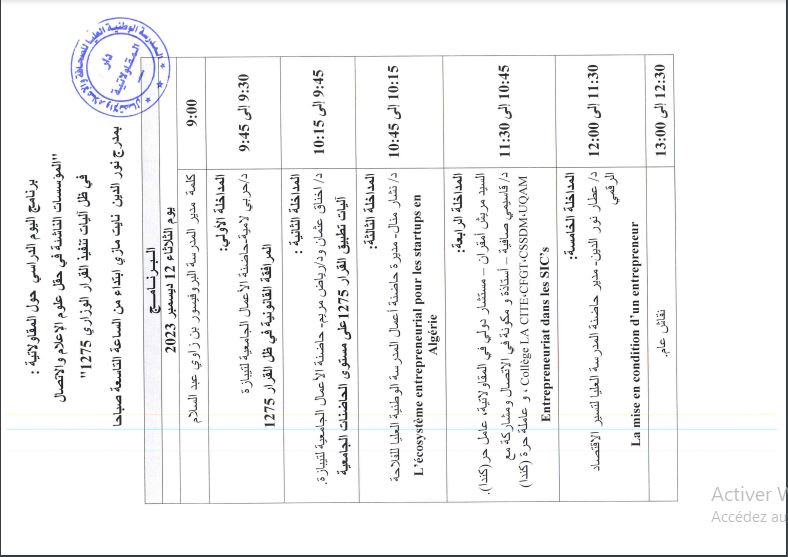 برنامج اليوم الدراسي حول المقاولاتية :
"المؤسسات الناشئة في حقل علوم الإعلام والاتصال
في ظل آليات تنفيذ القرار الوزاري 1275"
بمدرج نور الدين نايت مازي ابتداء من الساعة التاسعة صباحا
المدرسة الوطنية العليا للصحافة وعلوم الإعلام
دار
المقاولاتية
البرنامج
يوم الثلاثاء 12 ديسمبر 2023
9:00
كلمة مدير المدرسة البروفيسور بن زاوي عبد السلام
9:30 إلى 9:45
المداخلة الأولى:
د/حربي لامية-حاضنة الأعمال الجامعية لتيبازة
المرافقة القانونية في ظل القرار 1275
9:45 إلى 10:15
المداخلة الثانية :
د/ اخناق عثمان ود/رياض مريم- حاضنة الأعمال الجامعية لتيبازة.
آليات تطبيق القرار 1275 على مستوى الحاضنات الجامعية
10:15 إلى 10:45
المداخلة الثالثة:
د/ نشار منال- مديرة حاضنة أعمال المدرسة الوطنية العليا للفلاحة
L'écosystème entrepreneurial pour les startups en
Algérie
10:45 إلى 11:30
المداخلة الرابعة:
السيد مريش أمقران – مستشار دولي في المقاولاتية، عامل حر(كندا).
د/ قاسيمي صافية – أستاذة و مكونة في الاتصال ومشاركة مع
Collège LA CITE،CFGT،CSSDM،UQAM ، و عاملة حرة (كندا)
Entrepreneuriat dans les SIC's
11:30 إلى 12:00
المداخلة الخامسة:
د/ عطار نور الدين- مدير حاضنة المدرسة العليا لتسيير الاقتصاد
الرقمي
La mise en condition d'un entrepreneur
12:30 إلى 13:00
نقاش عام.
Activer
Accédez au